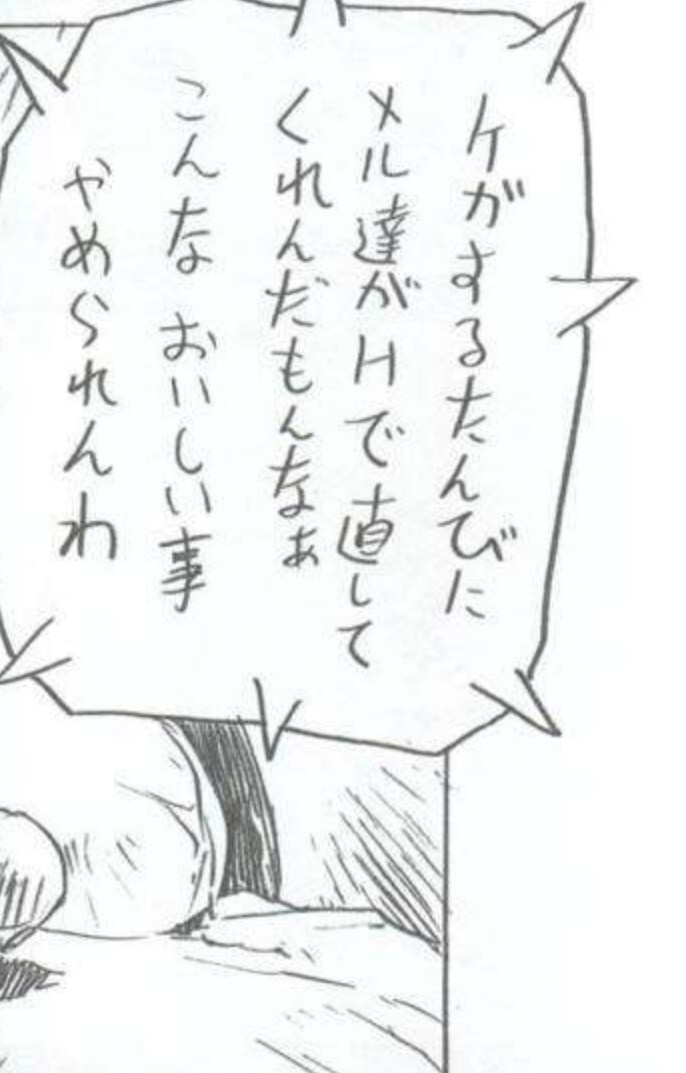 ケガするたんびに
メル達がHで直して
くれんだもんなぁ
こんな おいしい事
やめられんわ